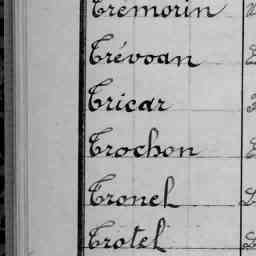 Trémorin
Trévoan
Tricar
Trochon
Tronel
Trotel